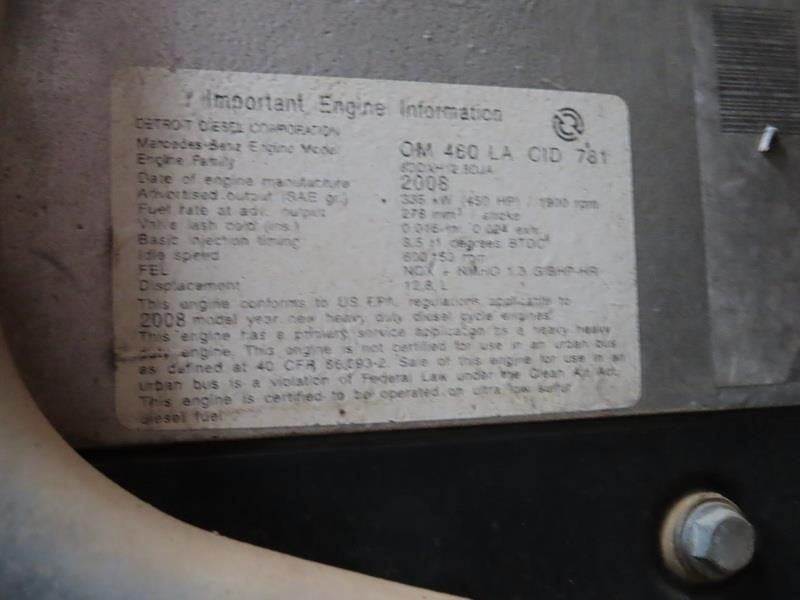 Important Engine Information
DETROIT DIESEL CORPORATION
Mercedes-Benz Engine Model OM 460 LA CID 781
Engine Family
Date of engine manufacture 2008
Advertised output (SAE gr.) 335 kW (450 HP) / 1900 rpm
Fuel rate at adv. output 278 mm³ / stroke
Valve lash cold (ins.)
Basic injection timing degrees BTDC
Idle speed rpm
FEL NOX + NMHC 1.3 G/BHP-HR
Displacement 12.8 L
This engine conforms to US EPA regulations applicable to
2008 model year new heavy duty diesel cycle engines.
This engine has a primary service application as a heavy heavy
duty engine. This engine is not certified for use in an urban bus
as defined at 40 CFR 86.093-2. Sale of this engine for use in an
urban bus is a violation of Federal Law under the Clean Air Act.
This engine is certified to be operated on ultra low sulfur
diesel fuel